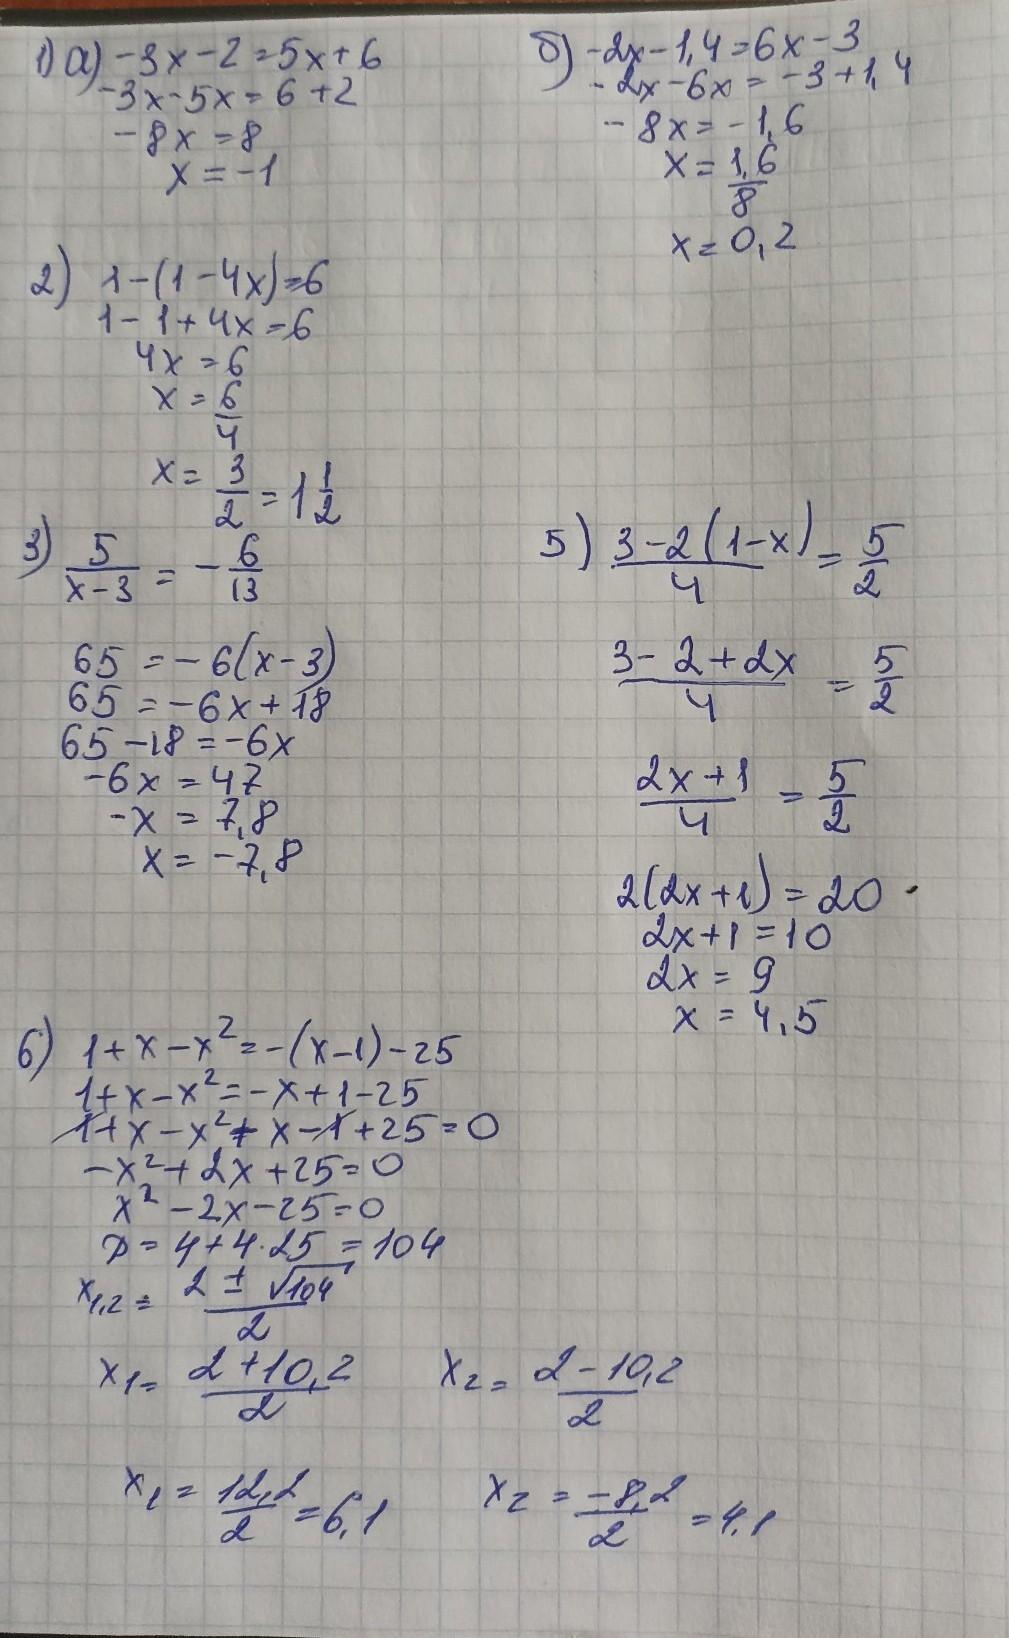 1) а) -3x-2=5x+6
-3x-5x=6+2
-8x=8
x=-1
б) -2x-1,4=6x-3
-2x-6x=-3+1,4
-8x=-1,6
x=1,6/8
x=0,2
2) 1-(1-4x)=6
1-1+4x=6
4x=6
x=6/4
x=3/2=1 1/2
3) 5/(x-3)=-6/13
65=-6(x-3)
65=-6x+18
65-18=-6x
-6x=47
-x=7,8
x=-7,8
5) (3-2(1-x))/4=5/2
(3-2+2x)/4=5/2
(2x+1)/4=5/2
2(2x+1)=20
2x+1=10
2x=9
x=4,5
6) 1+x-x²=-(x-1)-25
1+x-x²=-x+1-25
1+x-x²+x-1+25=0
-x²+2x+25=0
x²-2x-25=0
D=4+4·25=104
x₁,₂=(2±√104)/2
x₁=(2+10,2)/2
x₂=(2-10,2)/2
x₁=12,2/2=6,1
x₂=-8,2/2=4,1